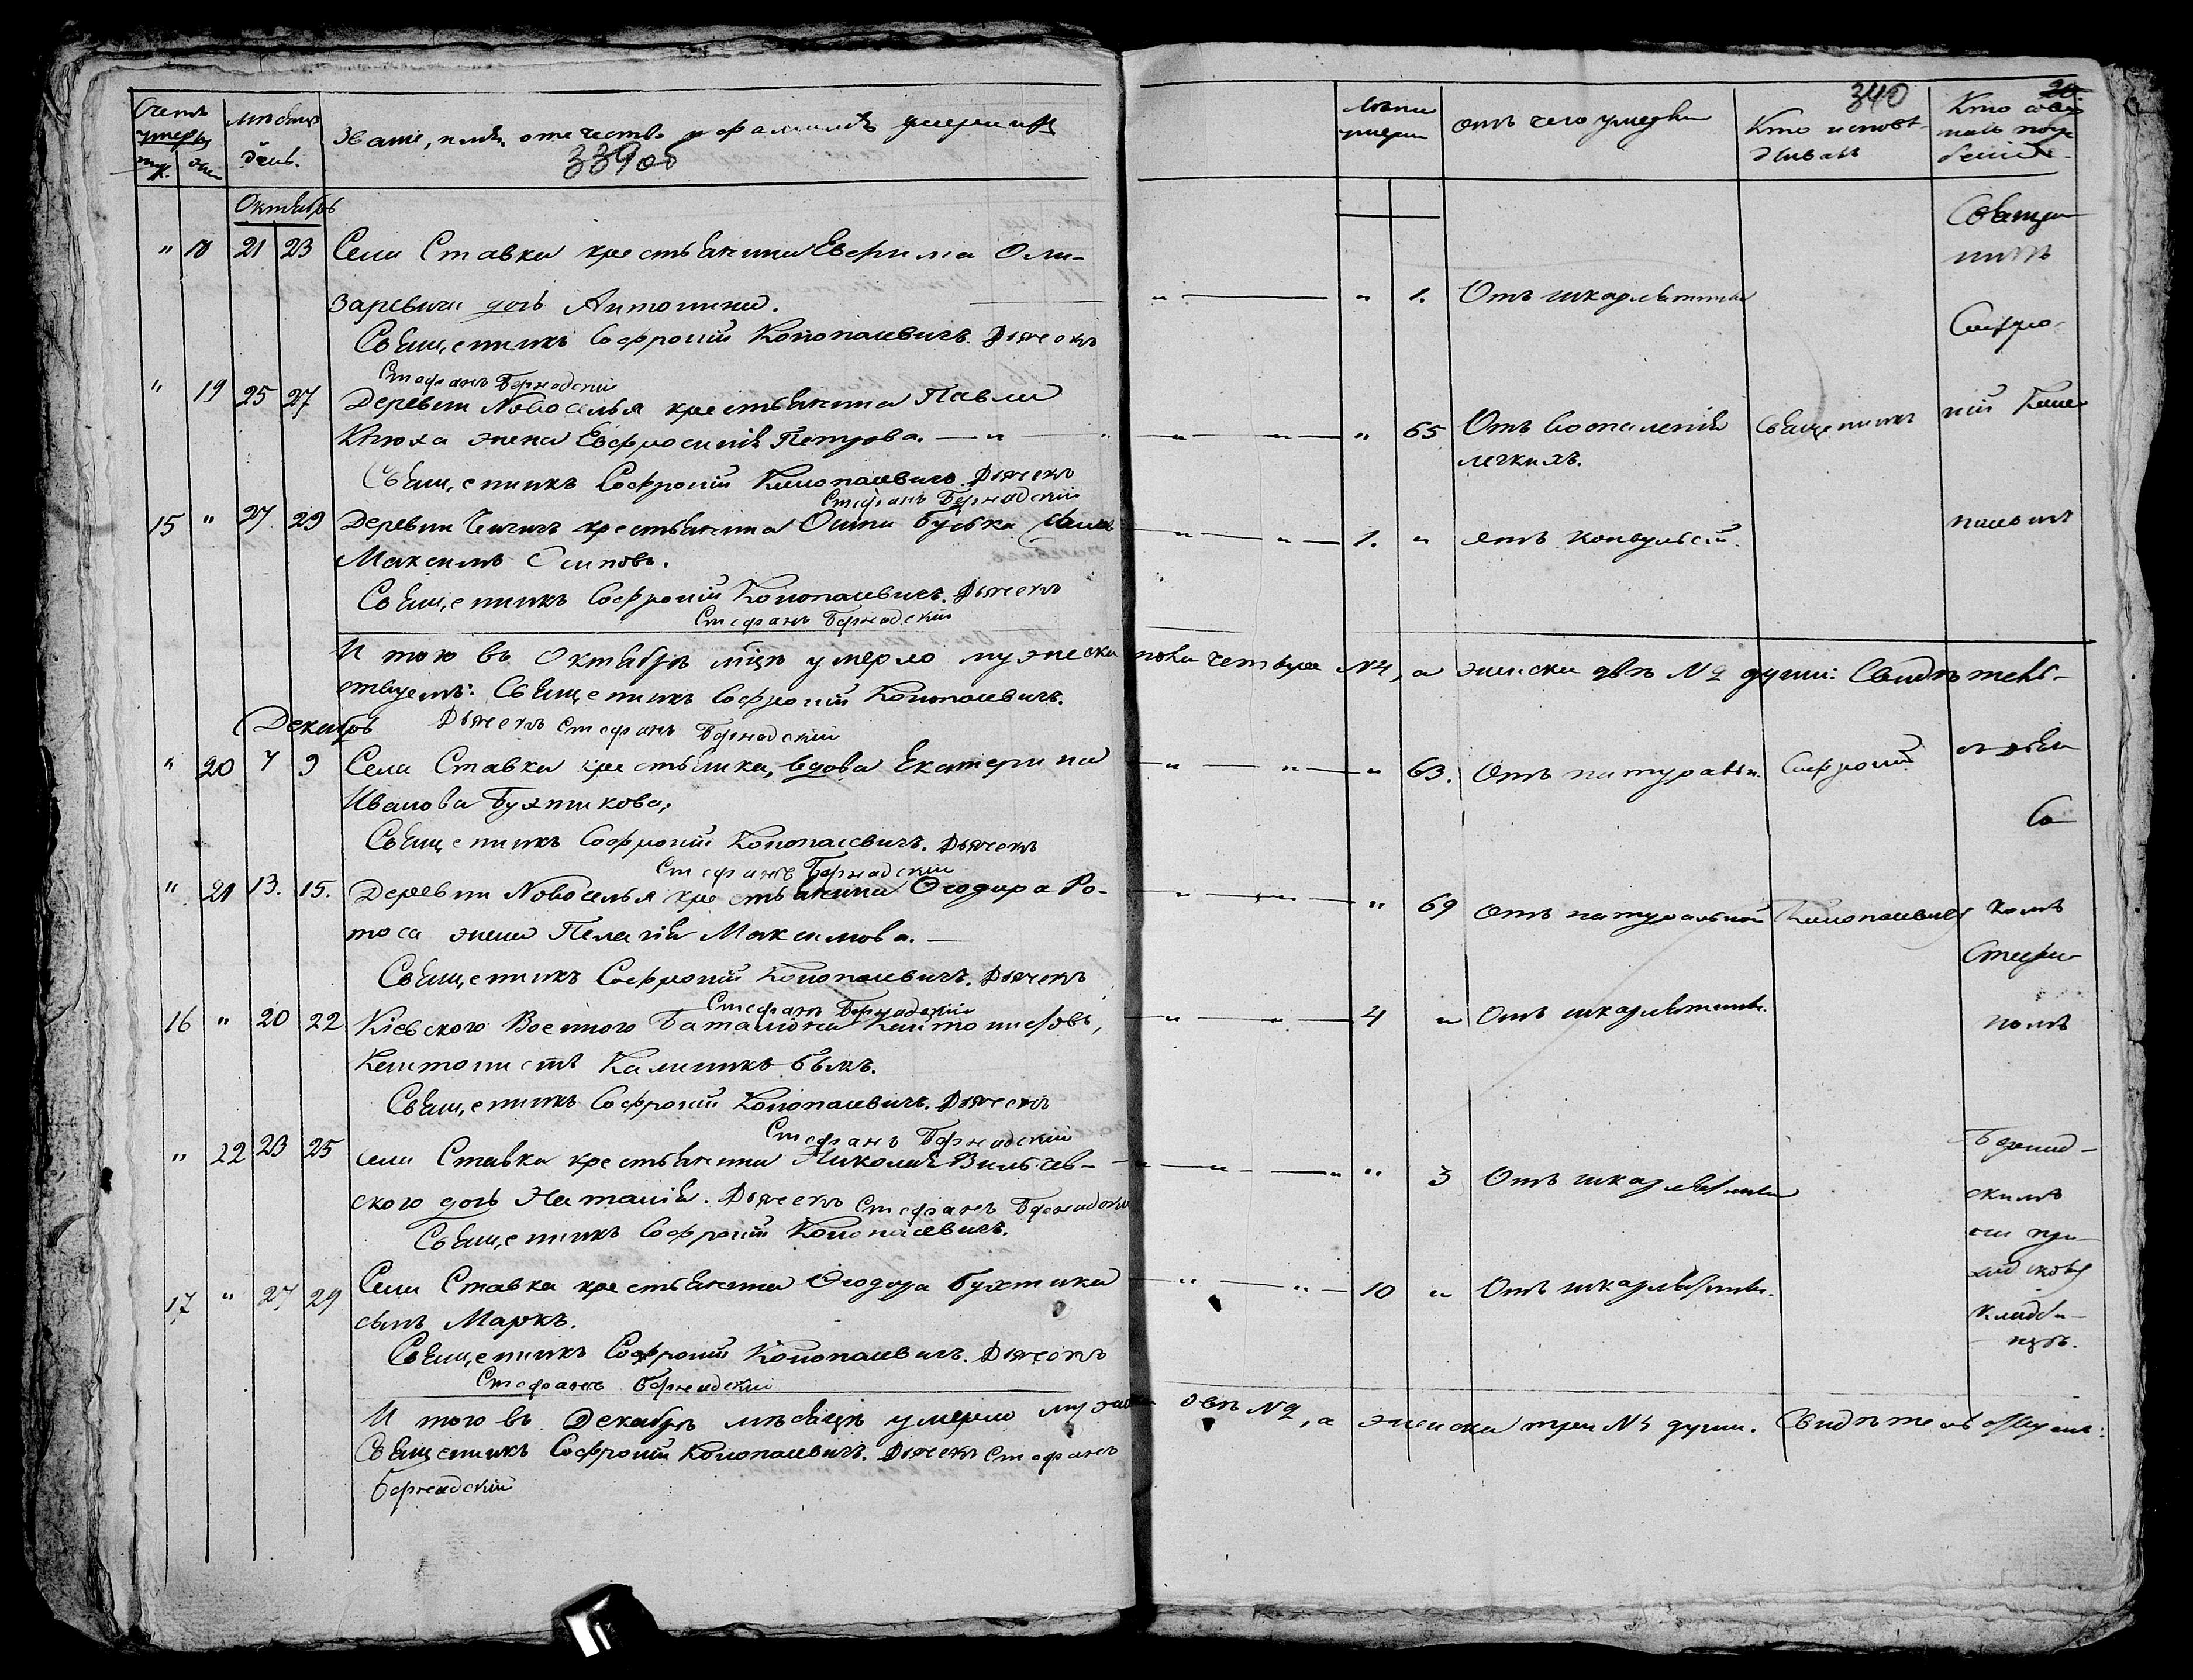 Счетъ умерш
муж. жен
мѣсяцъ
день.
Званіе, имя, отечество и фамилія умершихъ
339об
Лѣта умерш
отъ чего умерли
340
Кто исповѣдывалъ
Кто совер
шалъ погр
бенія
Октябрь
" 18 21 23 Села Ставки крестьянина Ефрима Оли-
заревича дочь Антонина.
" " 1. Отъ шкарлятины
Священникъ Софроній Конопацевичъ. Дьячекъ
Стефанъ Бернадскій
" 19 25 27 Деревни Новоселья крестьянина Павла
Кнюха жена Евфросинія Петрова. — "
" " " 65 Отъ воспаленія Священникъ
легкихъ.
Священникъ Софроній Конопацевичъ. Дьячекъ
Стефанъ Бернадскій
15 " 27 29 Деревни крестьянина Осипа Бубка сынъ
Максимъ Осиповъ.
" " 1. " отъ конвульсій.
Священникъ Софроній Конопацевичъ. Дьячекъ
Стефанъ Бернадскій
И того въ Октябрѣ мѣсяцѣ умерло мужеска пола четыре №4, а женска двѣ №2 души: Свидѣтель-
ствуемъ: Священникъ Софроній Конопацевичъ.
Дьячекъ Стефанъ Бернадскій
Декабрь
" 20 7 9 Села Ставки крестьянка, вдова Екатерина
Иванова Бухтикова,
" " " 63. Отъ натуральн. Софроній
Священникъ Софроній Конопацевичъ. Дьячекъ
Стефанъ Бернадскій
" 21 13. 15. Деревни Новоселья крестьянина Ѳеодора Ро-
тоса жена Пелагія Максимова. —
" " " 69 отъ натуральной Конопацевичъ
Священникъ Софроній Конопацевичъ. Дьячекъ
Стефанъ Бернадскій
16 " 20 22 Кіевского Военного Баталіона Кантонистовъ,
Кантонистъ Калиникъ
" " 4 " Отъ шкарлятины.
Священникъ Софроній Конопацевичъ. Дьячекъ
Стефанъ Бернадскій
" 22 23 25 села Ставка крестьянина Николая Вильчев-
ского дочь Наталія. Дьячекъ Стефанъ Бернадскій
" " " 3 Отъ шкарлятины
Священникъ Софроній Конопацевичъ.
17 " 27 29 Села Ставка крестьянина Ѳеодора Бухтика
сынъ Маркъ.
" " 10 " Отъ шкарлятины.
Священникъ Софроній Конопацевичъ. Дьячекъ
Стефанъ Бернадскій
И того въ Декабрѣ мѣсяцѣ умерло мужеска двѣ №2, а женска три №3 души. Свидѣтельствуемъ:
Священникъ Софроній Конопацевичъ. Дьячекъ Стефанъ
Бернадскій
Священ
никъ
Софро-
ній Коно
пацевичъ
съ дья
Стефа-
номъ
Бернад-
скимъ
на при-
ходскомъ
кладби-
щѣ.